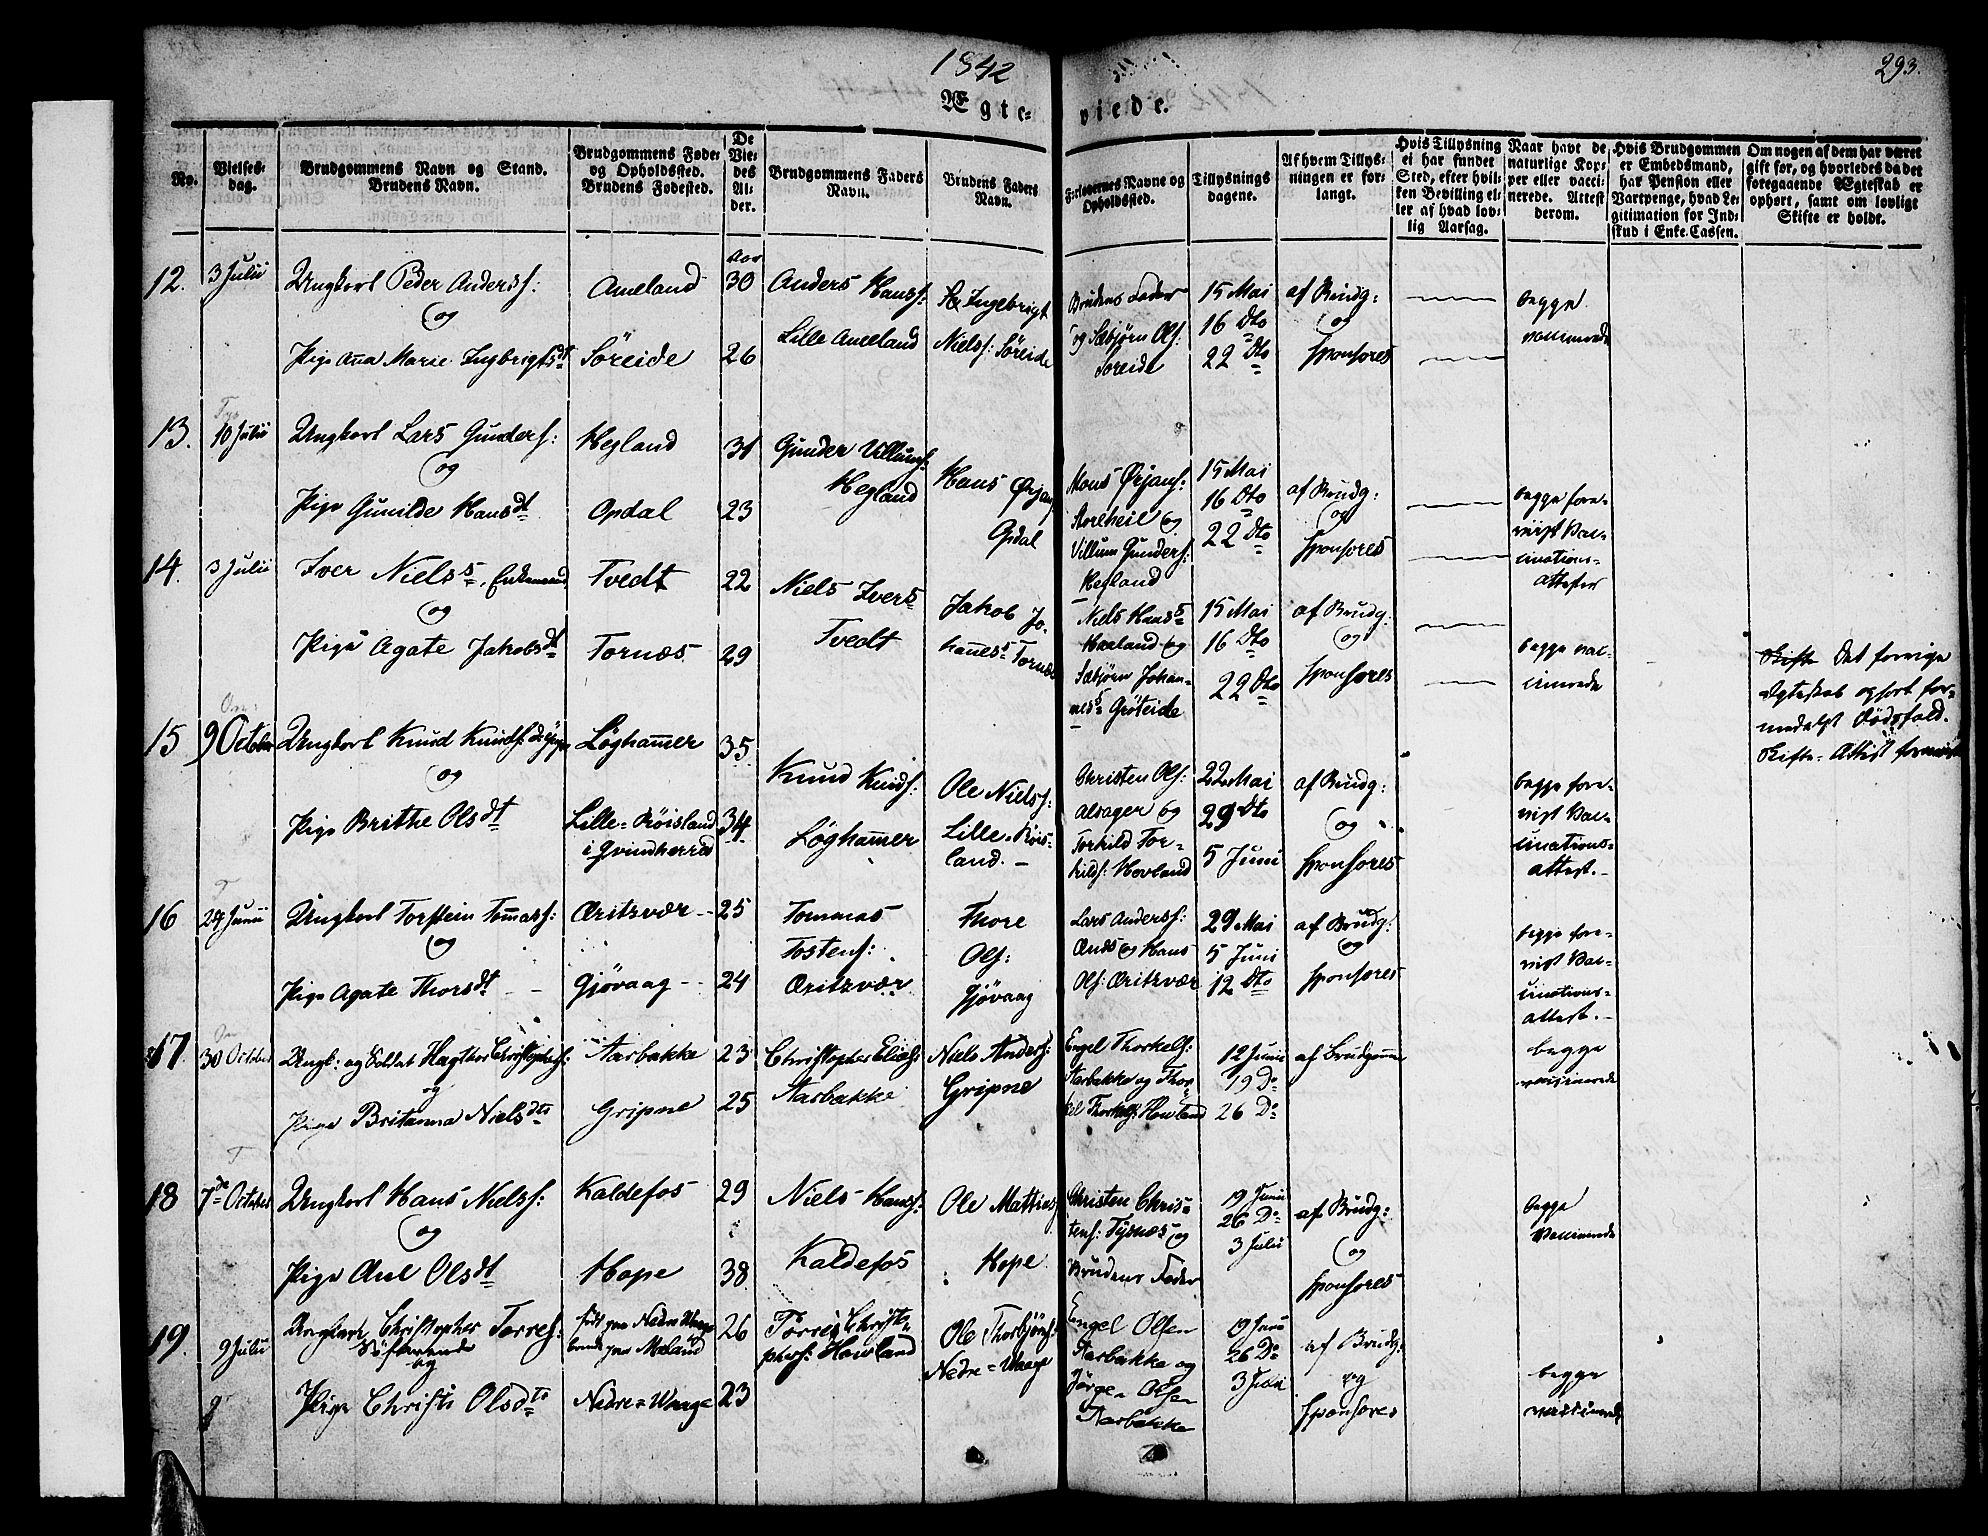 1842
293.
Ægte-
viede.
No.
Vielses-
dag.
Brudgommens Navn og Stand.
Brudens Navn.
Brudgommens Føde-
og Opholdssted.
Brudens Fødested.
De
Vie-
des
Al-
der.
Brudgommens Faders
Navn.
Brudens Faders
Navn.
Forlovernes Navne og
Opholdssted.
Tillysnings
dagene.
Af hvem Tillys-
ningen er for-
langt.
Hvis Tillysning
ei har fundet
Sted, efter hvil-
ken Bevilling el-
ler af hvad lov-
lig Aarsag.
Naar havt de
naturlige Kop-
per eller vacci-
nerede. Attest
derom.
Hvis Brudgommen
er Embedsmand,
har Pension eller
Vartpenge, hvad Le-
gitimation for Ind-
skud i Enke-Cassen.
Om nogen af dem har været
gift før, og hvorledes da det
foregaaende Ægteskab er
ophørt, samt om lovligt
Skifte er holdt.
12.
3 Julii
Ungkarl Peder Anderss:
og
Pige Anna Marie Ingbrigtsdt
Ameland
Søreide
Aar
30
26
Anders Hanss:
Lille Ameland
Ingebrigt
Nielss: Søreide
Brudens Fader
og Sæbjørn Ols:
Soreide
15 Mai
16 Dto
22 Dto
af Brudg:
og
sponsores
begge
vaccinerede
13.
10 Julii
Ungkarl Lars Gunders:
og
Pige Gunilde Hansdt
Hegland
Opdal
31
23
Gunder Villums:
Hegland
Hans Ørjans
Opdal
Mons Ørjans:
og
Villum Gunders:
Hegland
15 Mai
16 Dto
22 Dto
af Brudg:
og
sponsores
begge fore-
viist Vac-
cinations-
attester
14.
3 Julii
Iver Nielss, Enkemand
og
Pige Agate Jakobsdt
Tvedt
Tornæs
22
29
Niels Ivers
Tvedt
Jakob Jo-
hanness Tornæs
Niels Hanss
Haaland og
Sæbjørn Johan-
ness Grøteide
15 Mai
16 Dto
22 Dto
af Brudg:
og
sponsores
begge vac-
cinerede
Skifte Det forrige
Ægteskab ophørt for-
medelst Dødsfald.
Skifte-Attest forevist
15
9 October
Ungkarl Knud Knuds:
og
Pige Brithe Olsdt
Løghammer
Lille-Røisland
i Qvindherred
35
34
Knud Knuds:
Løghammer
Ole Niels:
Lille-Røis-
land.
Christen Ols:
alsager og
Torkild Tor-
kilds: Hovland
22 Mai
29 Dto
5 Juni
af Brudg:
og
sponsores
begge fore-
vist Vac-
cinations-
attest.
16
24 Junii
Ungkarl Torstein Tomass:
og
Pige Agate Thorsdt
Øritzvær
Gjøvaag
25
24
Tommas
Tostens:
Øritzvær
Thore
Ols:
Gjøvaag
Lars Anders:
og Hans
Ols: Øritzvær
29 Mai
5 Juni
12 Dto
af Brudg:
og
sponsores
begge fore-
vist Vac-
cinations-
attest.
17
30 October
Ungk: og Soldat Hagthor Christophers:
og
Pige Britanna Nielsdt
Aarbakke
Gripne
23
25
Christopher Elias:
Aarbakke
Niels Anders:
Gripne
Engel Thorkels:
Aarbakke og Thor-
kel Thorkels: Howland
12 Junii
19 Do
26 Do
af Brudgommen
begge
vaccinerede
18
7de October
Ungkarl Hans Nielss:
og
Pige Anl Olsdt
Kaldefos
Hope
29
38
Niels Hans:
Kaldefos
Ole Mattias
Hope
Christen Chris-
tens: Tysnæs og
Brudens Fader
19 Junii
26 Do
3 Julii
af Brudg:
og
sponsores
begge
vaccinerede
19.
9 Julii
Ungkarl Christopher Torres:
og
Pige Christi Olsdt
født paa Nedre Waage
boende paa Meland
Nedre-Waage
26
23
Torres Christo-
phers: Howland
Ole Thorbjørns:
Nedre-Waage
Engel Olsen
Aarbakke og
Jørgen Olsen
Aarbakke
19 Junii
26 Do
3 Julii
af Brudg:
og
sponsores
begge
vaccinerede